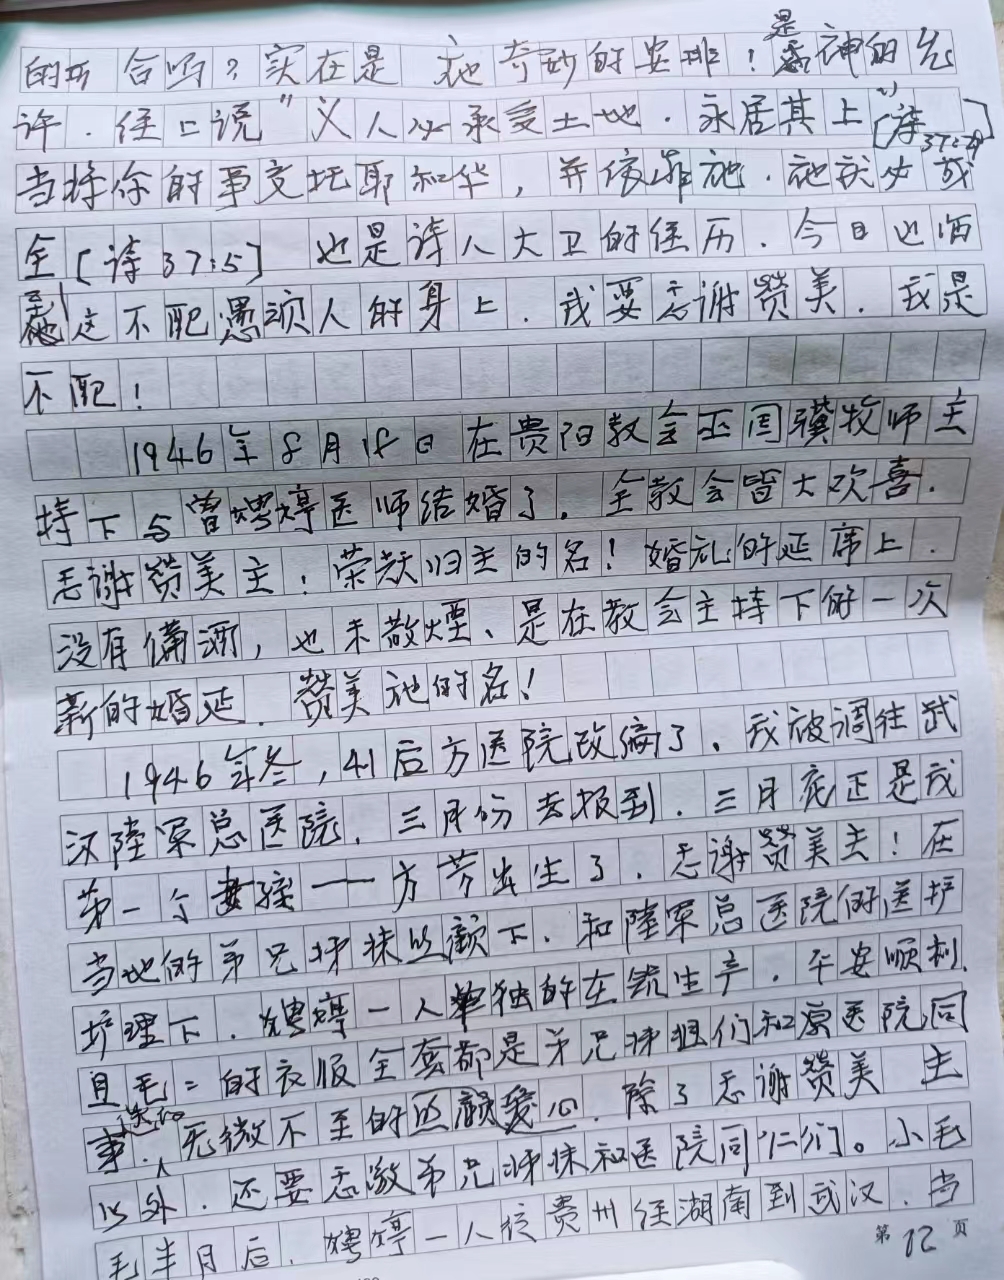 的巧合吗?实在是 祂奇妙的安排!是神的允
许.经上说"义人必承受土地.永居其上"[诗37:29]
当将你的事交托耶和华,并倚靠祂.祂就必成
全[诗37:5] 也是诗人大卫的经历.今日也洒
到这不配愚顽人的身上.我要感谢赞美.我是
不配!
1946年8月18日在贵阳教会巫国骥牧师主
持下与曾娉婷医师结婚了.全教会皆大欢喜.
感谢赞美主!荣耀归主的名!婚礼的延席上.
没有备酒,也未散烟、是在教会主持下的一次
新的婚延.赞美祂的名!
1946年冬,41后方医院改编了.我被调往武
汉陸军总医院.三月份去报到.三月底正是我
第一个女孩——方芳出生了.感谢赞美主!在
当地的弟兄姊妹照顾下、和陸军总医院的医护
护理下.娉婷一人单独的在筑生产.平安顺利.
且毛=的衣服全套都是弟兄姊妹们和原医院同
事送的.无微不至的照顾爱心.除了感谢赞美 主
以外.还要感激弟兄姊妹和医院同仁们。小毛
毛半月后.娉婷一人从贵州经湖南到武汉.当
第 12 页